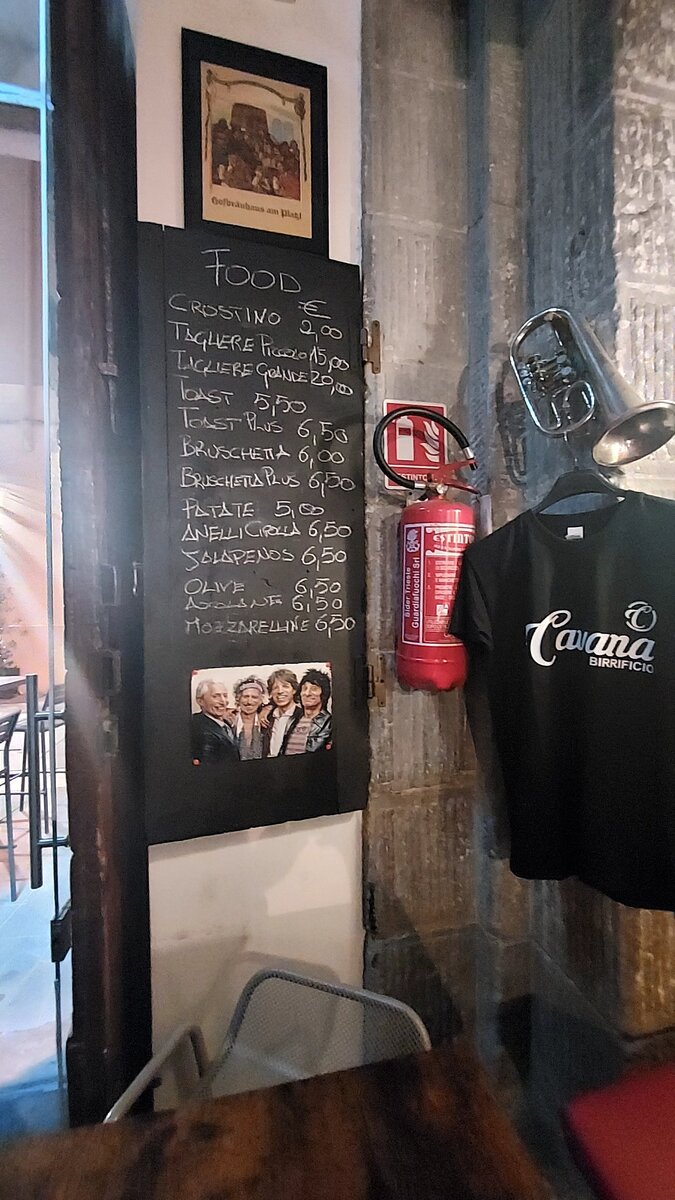 Hofbräuhaus am Platzl
FOOD
€
CROSTINO 2,00
TAGLIERE PICCOLO 15,00
TAGLIERE GRANDE 20,00
TOAST 5,50
TOAST PLUS 6,50
BRUSCHETTA 6,00
BRUSCHETTA PLUS 6,50
PATATE 5,00
ANELLI CIPOLLA 6,50
JALAPENOS 6,50
OLIVE 6,50
ASCOLANE 6,50
MOZZARELLINE 6,50
ESTINTO
Sider Trieste
Guardiafuochi Srl
Cavana
BIRRIFICIO